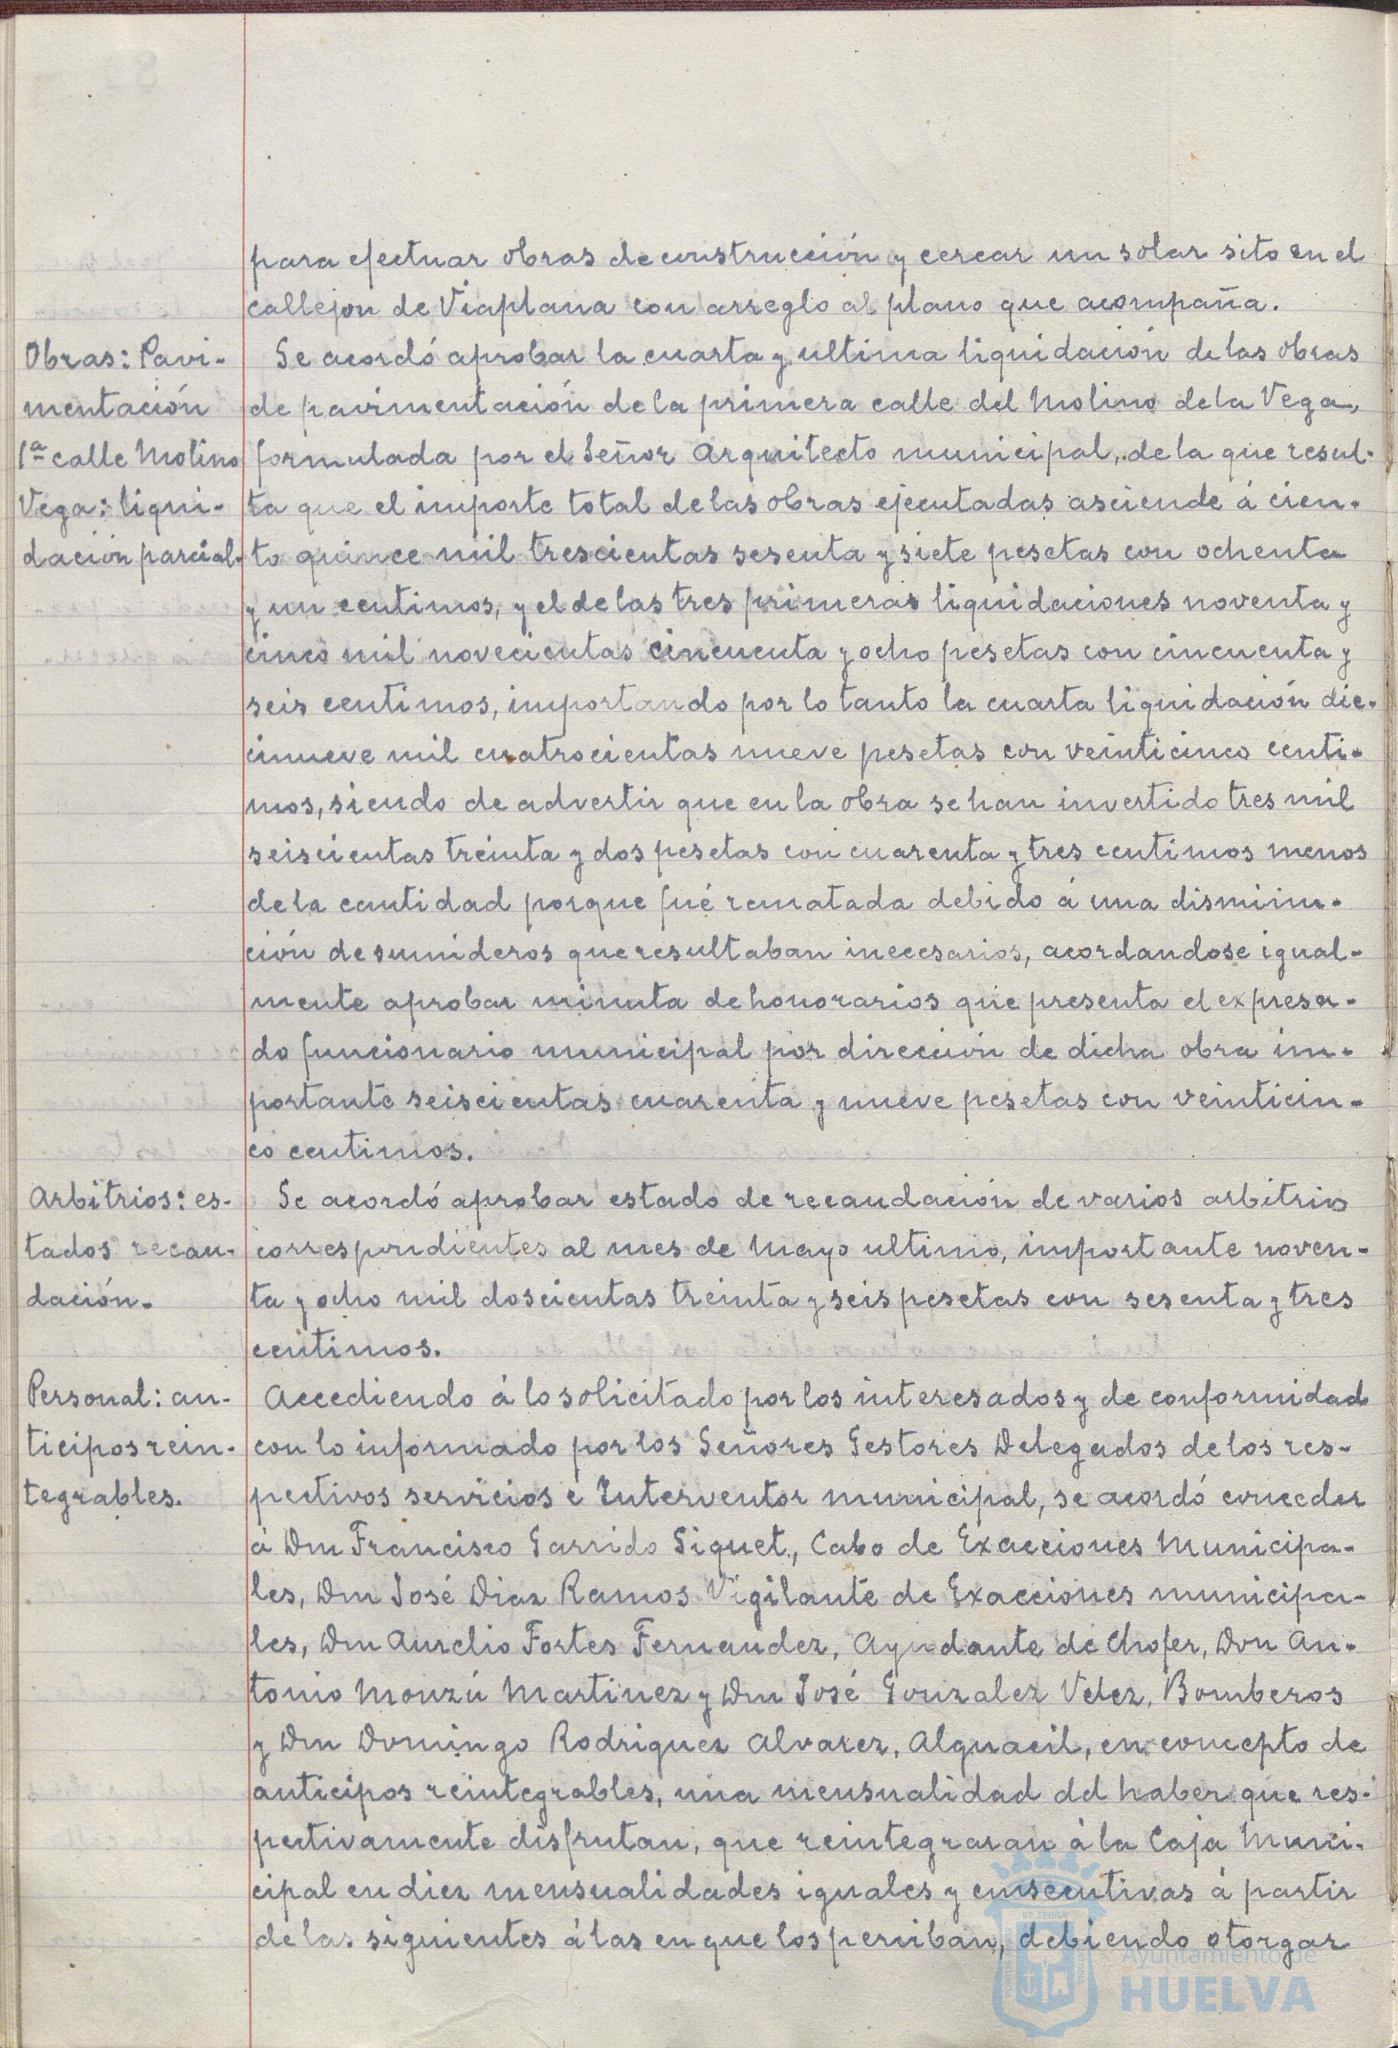 para efectuar obras de construcción y cercar un solar sito en el
callejon de Viaplana con arreglo al plano que acompaña.
Obras: Pavi-
mentación
1ª calle Molino
Vega: liqui-
dación parcial.
Se acordó aprobar la cuarta y ultima liquidación de las obras
de pavimentación de la primera calle del Molino de la Vega,
formulada por el Señor Arquitecto municipal, de la que resul-
ta que el importe total de las obras ejecutadas asciende á cien-
to quince mil trescientas sesenta y siete pesetas con ochenta
y un centimos, y el de las tres primeras liquidaciones noventa y
cinco mil novecientas cincuenta y ocho pesetas con cincuenta y
seis centimos, importando por lo tanto la cuarta liquidación die-
cinueve mil cuatrocientas nueve pesetas con veinticinco centi-
mos, siendo de advertir que en la obra se han invertido tres mil
seiscientas treinta y dos pesetas con cuarenta y tres centimos menos
de la cantidad porque fué rematada debido á una disminu-
ción de sumideros que resultaban inecesarios, acordandose igual-
mente aprobar minuta de honorarios que presenta el expresa-
do funcionario municipal por dirección de dicha obra im-
portante seiscientas cuarenta y nueve pesetas con veinticin-
co centimos.
Arbitrios: es-
tados recau-
dación.
Se acordó aprobar estado de recaudación de varios arbitrios
correspondientes al mes de Mayo ultimo, importante noven-
ta y ocho mil doscientas treinta y seis pesetas con sesenta y tres
centimos.
Personal: an-
ticipos rein-
tegrables.
Accediendo á lo solicitado por los interesados y de conformidad
con lo informado por los Señores Gestores Delegados de los res-
pectivos servicios é Interventor municipal, se acordó conceder
á Don Francisco Garrido Siquet, Cabo de Exacciones Municipa-
les, Don José Diaz Ramos Vigilante de Exacciones municipa-
les, Don Aurelio Fortes Fernandez, Ayudante de Chofer, Don An-
tonio Monzú Martinez y Don José Gonzalez Velez, Bomberos
y Don Domingo Rodriguez Alvarez, Alguacil, en concepto de
anticipos reintegrables, una mensualidad del haber que res-
pectivamente disfrutan, que reintegraran á la Caja Muni-
cipal en diez mensualidades iguales y consecutivas á partir
de las siguientes á las en que los perciban, debiendo otorgar
Ayuntamiento de
HUELVA